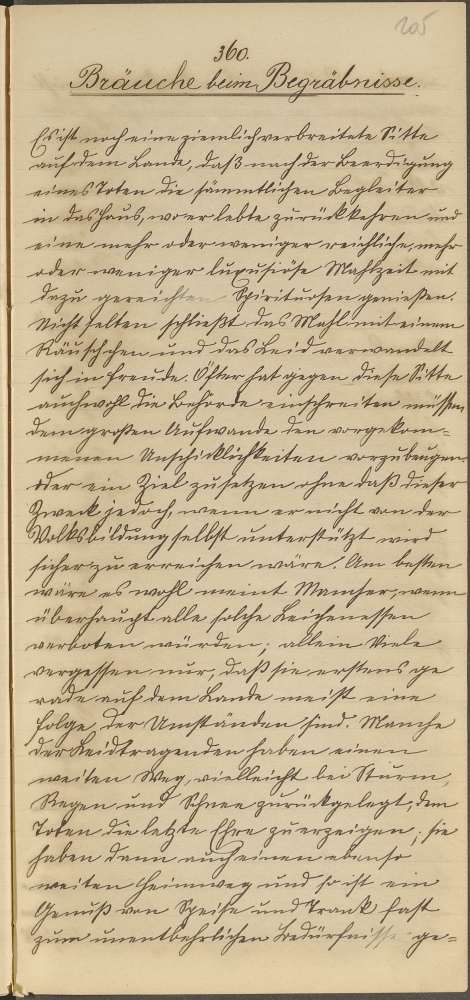 205
360.
Bräuche beim Begräbnisse.
Es ist noch eine ziemlich verbreitete Sitte
auf dem Lande, daß nach der Beerdigung
eines Toten die sämmtlichen Begleiter
in das Haus, wo er lebte zurückkehren und
eine mehr oder weniger reichliche, mehr
oder weniger luxusiöse Mahlzeit mit
dazu gereichten Spirituosen genießen.
Nicht selten schließt das Mahl mit einem
Räuschchen und das Leid verwandelt
sich in Freude. Öfter hat gegen diese Sitte
auch wohl die Behörde einschreiten müssen,
dem großen Aufwande den vorgekom-
menen Unschicklichkeiten vorzubeugen
oder ein Ziel zu setzen ohne daß dieser
Zweck jedoch, wenn er nicht von der
Volksbildung selbst unterstützt wird
sicher zu erreichen wäre. Am besten
wäre es wohl meint Mancher, wenn
überhaupt alle solche Leichenessen
verboten würden; allein Viele
vergessen nur, daß sie erstens ge
rade auf dem Lande meist eine
Folge der Umständen sind. Manche
der Leidtragenden haben einen
weiten Weg, vielleicht bei Sturm,
Regen und Schnee zurückgelegt, dem
Toten die letzte Ehre zu erzeigen; sie
haben dann auch einen ebenso
weiten Heimweg und so ist ein
Genuß von Speise und Trank fast
zum unentbehrlichen Bedürfnisse ge-